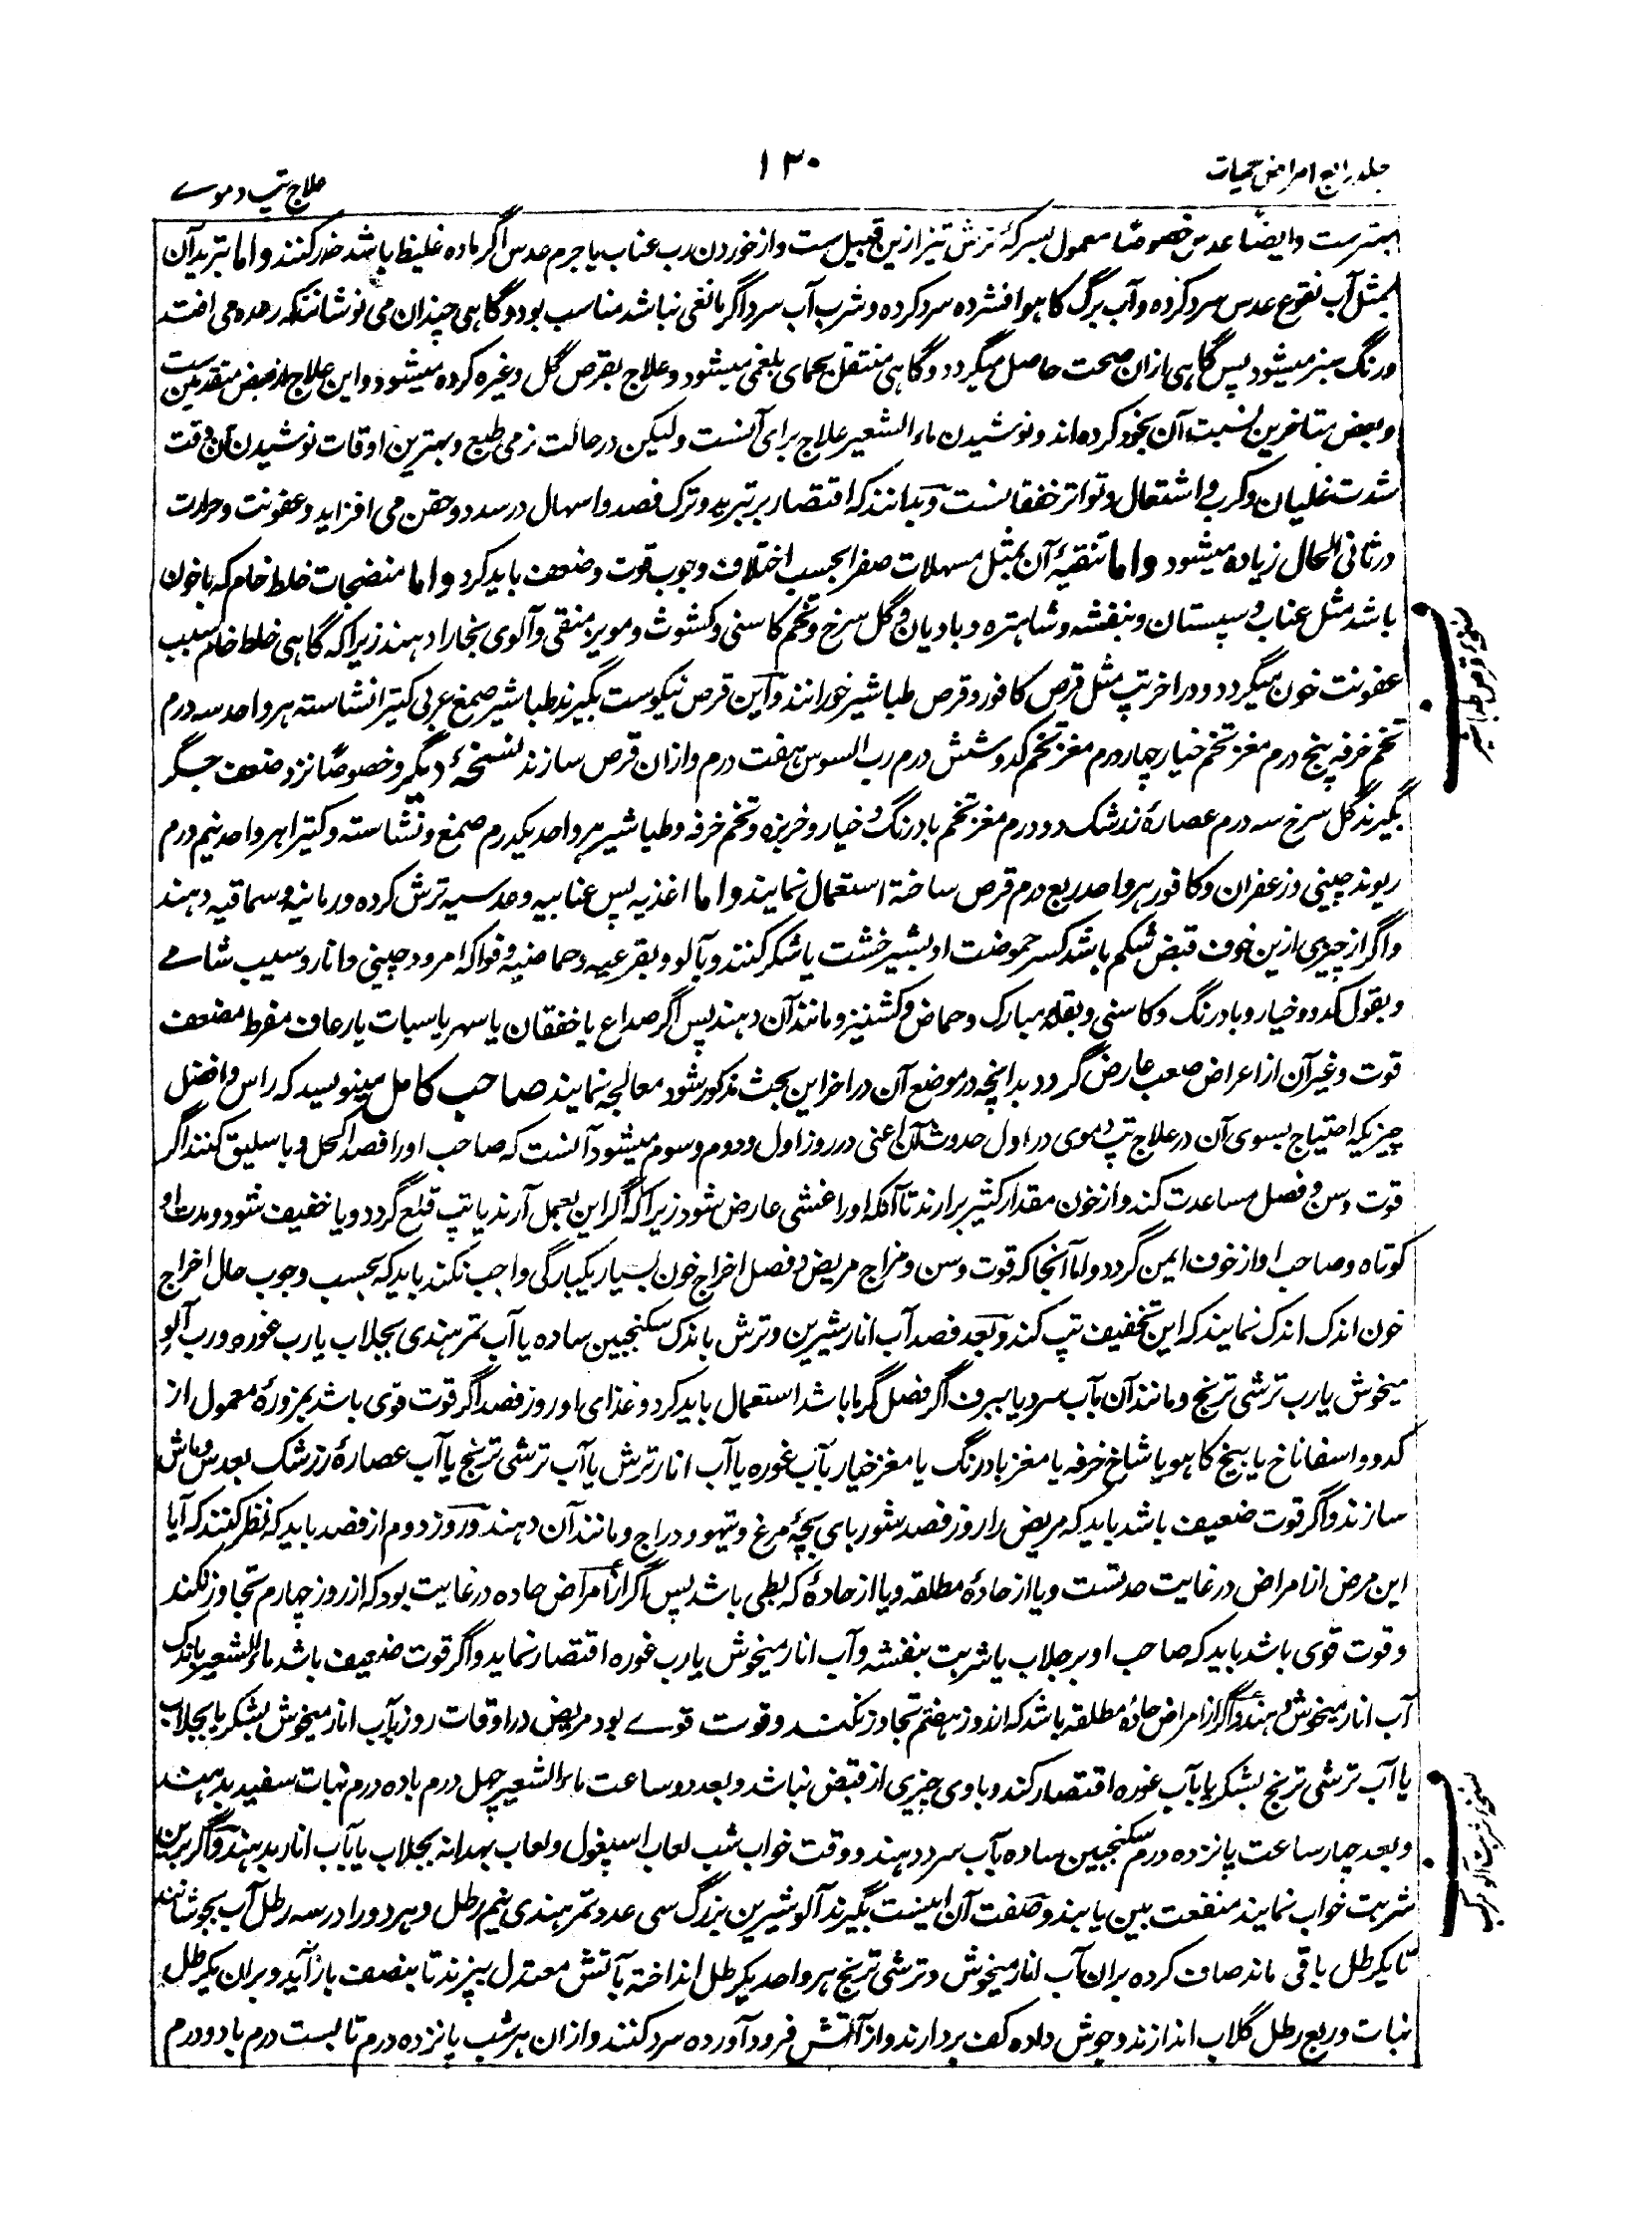 جلد رابع امراض حمیات
۱۳۰
علاج تپ دموے
بهترست و ایضاً عدس خصوصاً معمول بسرکهٔ ترش تیز ازین قبیل ست و از خوردن رب عناب یا جرم عدس اگر ماده غلیظ باشد حذر کنند و اما تبرید آن
بمثل آب نقوع عدس سرد کرده و آب برگ کاهو افشرده سرد کرده و شرب آب سرد اگر مانعی نباشد مناسب بود و گاهی چندان می نوشانند که رعده می افتد
و رنگ سبز میشود پس گاهی ازان صحت حاصل میگردد و گاهی منتقل بحمای بلغمی میشود و علاج بقرص گل و غیره کرده میشود و این علاج از بعض متقدمین ست
و بعض متاخرین نسبت آن بخود کرده اند و نوشیدن ماء الشعیر علاج برای آنست و لیکن در حالت نرمی طبع و بهترین اوقات نوشیدن آن وقت
شدت غلیان و کرب و اشتعال و تواتر خفقانست و بدانند که اقتصار بر تبرید و ترک فصد و اسهال در سدد و حقن می افزاید و عفونت و حرارت
در ثانی الحال زیاده میشود و اما تنقیهٔ آن بمثل مسهلات صفرا بحسب اختلاف وجوب قوت و ضعف باید کرد و اما منضجات خلط خام که باخون
باشد مثل عناب و سپستان و بنفشه و شاهتره و بادیان و گل سرخ و تخم کاسنی و کشوث و مویز منقی و آلوی بخارا دهند زیرا که گاهی خلط خام سبب
عفونت خون میگردد و در اخر تپ مثل قرص کافور و قرص طباشیر خورانند و این قرص نیکوست بگیرند طباشیر صمغ عربی کتیرا نشاسته هر واحد سه درم
تخم خرفه پنج درم مغز تخم خیار چهار درم مغز تخم کدو شش درم رب السوس هفت درم و ازان قرص سازند نسخهٔ دیگر و خصوصاً نزد ضعف جگر
بگیرند گل سرخ سه درم عصارهٔ زرشک دو درم مغز تخم بادرنگ و خیار و خربزه و تخم خرفه و طباشیر هر واحد یکدرم صمغ و نشاسته و کتیرا هر واحد نیم درم
ریوند چینی و زعفران و کافور هر واحد ربع درم قرص ساخته استعمال نمایند و اما اغذیه پس عنابیه و عدسیه ترش کرده و رمانیه و سماقیه دهند
و اگر از چیزی ازین خوف قبض شکم باشد کسر حموضت او بشیر خشت یا شکر کنند و بآلو و بقرعیه و حماضیه و فواکه امرود چینی و انار و سیب شامے
و بقول کدو و خیار و بادرنگ و کاسنی و بقله مبارک و حماض و کشنیز و مانند آن دهند پس اگر صداع یا خفقان یا سهر یا سبات یا رعاف مفرط مضعف
قوت و غیر آن از اعراض صعب عارض گردد بدانچه در موضع آن در اخر این بحث مذکور شود معالجه نمایند صاحب کامل مینویسد که راس و افضل
چیزیکه احتیاج بسوی آن در علاج تپ دموی در اول حدوث آن اعنی در روز اول و دوم و سوم میشود آنست که صاحب او را فصد اکحل و باسلیق کنند اگر
قوت و سن و فصل مساعدت کند و از خون مقدار کثیر برارند تا آنکه او را غشی عارض شود زیرا که اگر این بعمل آرند یا تپ قلع گردد و یا خفیف شود و مدت او
کوتاه و صاحب او از خوف ایمن گردد و اما آنجا که قوت و سن و مزاج مریض و فصل اخراج خون بسیار یکبارگی واجب نکند باید که بحسب وجوب حال اخراج
خون اندک اندک نمایند که این تخفیف تپ کند و بعد فصد آب انار شیرین و ترش باندک سکنجبین ساده یا آب تمر هندی بجلاب یا رب غوره و رب آلو
میخوش یا رب ترشی ترنج و مانند آن بآب سرد یا ببرف اگر فصل گرما باشد استعمال باید کرد و غذای او روز فصد اگر قوت قوی باشد بمزورهٔ معمول از
کدو و اسفاناخ یا بیخ کاهو یا شاخ خرفه یا مغز بادرنگ یا مغز خیار بآب غوره یا آب انار ترش یا آب ترشی ترنج یا آب عصارهٔ زرشک بعدس و ماش
سازند و اگر قوت ضعیف باشد باید که مریض را روز فصد شوربای بچهٔ مرغ و تیهو و دراج و مانند آن دهند و روز دوم از فصد باید که نظر کنند که آیا
این مرض از امراض در غایت حدتست و یا از حادهٔ مطلقه و یا از حادهٔ که بطی باشد پس اگر از امراض حاده در غایت بود که از روز چهارم تجاوز نکند
و قوت قوی باشد باید که صاحب او بر جلاب یا شربت بنفشه و آب انار میخوش یا رب غوره اقتصار نماید و اگر قوت ضعیف باشد ماء الشعیر باندک
آب انار میخوش دهند و اگر از امراض حادهٔ مطلقه باشد که از روز هفتم تجاوز نکند و قوت قوے بود مریض در اوقات روز بآب انار میخوش بشکر یا بجلاب
یا آب ترشی ترنج بشکر یا بآب غوره اقتصار کند و باوی چیزی از قبض نباشد و بعد دو ساعت ماء الشعیر چهل درم باده درم نبات سفید بدهند
و بعد چهار ساعت پانزده درم سکنجبین ساده بآب سرد دهند و وقت خواب شب لعاب اسپغول و لعاب بهدانه بجلاب یا بآب انار بدهند و اگر برین
شربت خواب نمایند منفعت بین یابند و صفت آن اینست بگیرند آلو شیرین بزرگ سی عدد تمر هندی نیم رطل و هر دو را در سه رطل آب بجوشانند
تا یکرطل باقی ماند صاف کرده بران آب انار میخوش و ترشی ترنج هر واحد یکرطل انداخته بآتش معتدل بپزند تا بنصف باز آید و بران یکرطل
نبات و ربع رطل گلاب اندازند و جوش داده کف بردارند و از آتش فرود آورده سرد کنند و ازان هر شب پانزده درم تا بست درم با دو درم
نسخهٔ قرص طباشیر
نسخهٔ شربت آلو مرکب